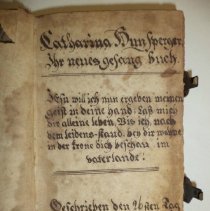 Catharina Hunsperger,
Ihr neues gesang buch.
JEsu will ich nun ergeben meinen
geist in deine hand: daß mich
die alleine leben. Bis ich, nach
dem leidens-stand, bey dir wohne
in der krone dich beschau im
vaterlande.
Geschrieben den 26sten Tag